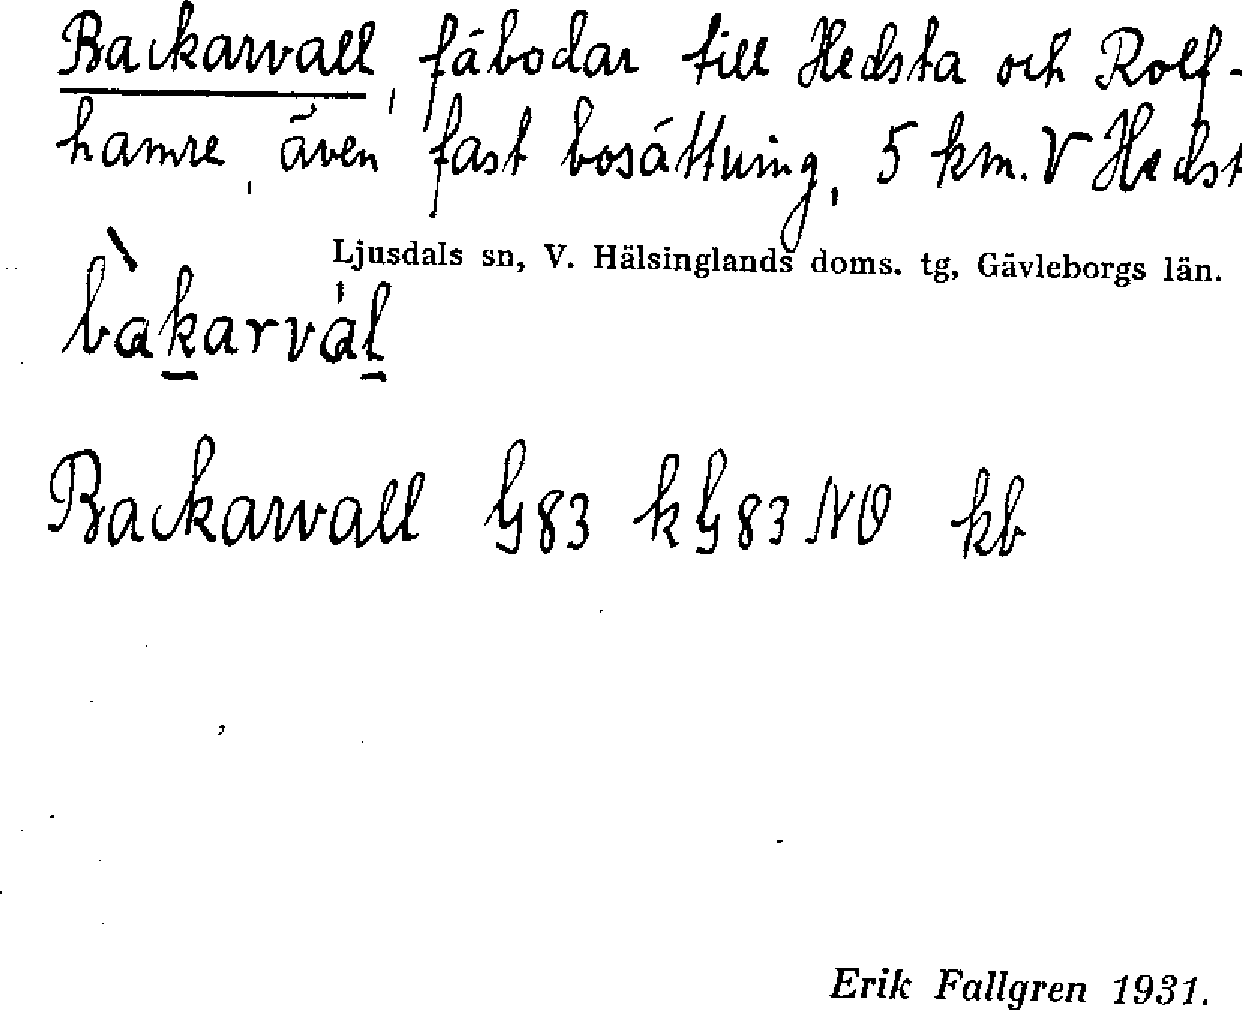 Backarvall, fäbodar till Hedsta och Rolf-
hamre, även fast bosättning, 5 km. V Hedst
Ljusdals sn, V. Hälsinglands doms. tg, Gävleborgs län.
bàkarvál
Backarvall G83 kG83NO kb
Erik Fallgren 1931.